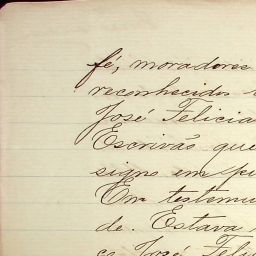 fé, moradores
reconhecidos
José Felicia
Escrivão que
signo em pu
Em testemu
de. Estava
co José Feli